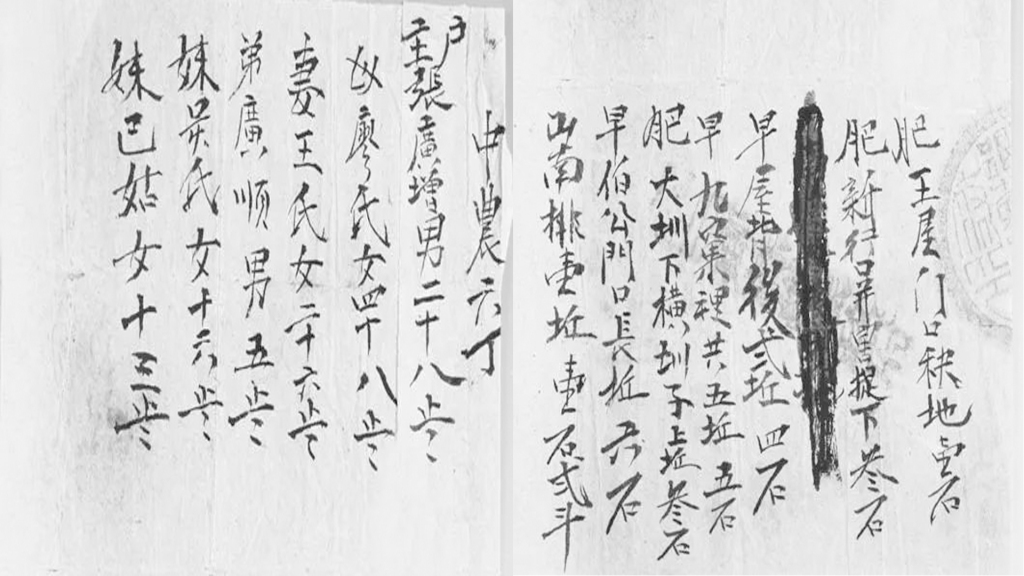 肥 王屋门口秧地壹石
肥 新行口井 堤下叁石
早 屋背後弍坵 四石
早 九 裡共五坵 五石
肥 大圳下横圳子上坵叁石
早 伯公門口長坵 六石
山南排壹坵 壹石弍斗
中農六丁
户主 張廣增男二十八
廖氏女四十八
妻王氏女二十六
弟廣順男五
妹吴氏女十六
妹巳姑女十三